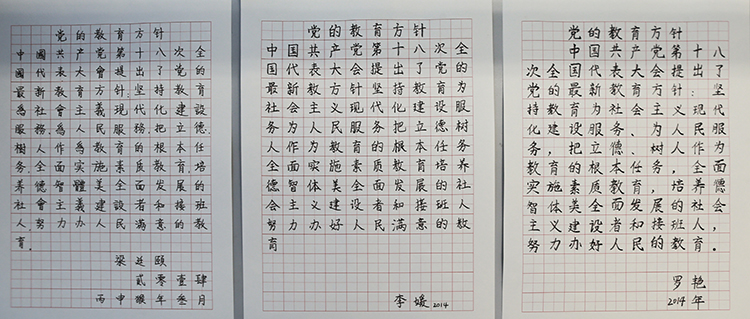 党的教育方针
中國共产党第十八次全
國代表大會提出了党的
最新教育方针:坚持教育
為社會主義現代化建設
服務.為人民服務把立德.
樹人作為教育的根本任
务.全面实施素质教育.培
养德智體美全面发展的
社會主義建設者和接班
人.努力办人民满意的教
育.
梁廷颐
贰零壹肆
丙申猴年叁月
党的教育方针
中国共产党第十八次全
国代表大会提出了党的
最新教育方针坚持教育为
社会主义现代化建设服
务为人民服务把立德树
人作为教育的根本任务
全面实施素质教育培养
德智体美全面发展的社
会主义建设者和接班人
努力办好人民满意的教
育
李媛 2014
党的教育方针
中国共产党第十八
次全国代表大会提出了
党的最新教育方针:坚
持教育为社会主义现代
化建设服务、为人民服
务,把立德、树人作为
教育的根本任务,全面
实施素质教育,培养德
智体美全面发展的社会
主义建设者和接班人,
努力办好人民的教育。
罗艳
2014年